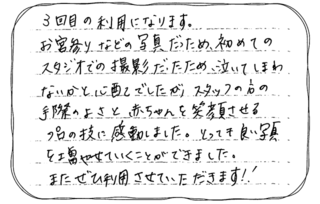 3回目の利用になります。
お宮参りなどの写真だため、初めての
スタジオでの撮影だたため、泣いてしまわ
ないかと心配でしたが、スタッフの方の
手際のよさと、赤ちゃんを笑顔させる
プロの技に感動しました。とっても良い写真
を増やせていくことができました。
またぜひ利用させていただきます!!